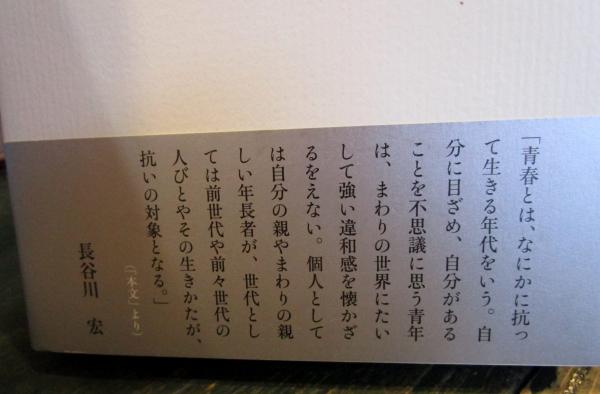 「青春とは、なにかに抗っ
て生きる年代をいう。自
分に目ざめ、自分がある
ことを不思議に思う青年
は、まわりの世界にたい
して強い違和感を懐かざ
るをえない。個人として
は自分の親やまわりの親
しい年長者が、世代とし
ては前世代や前々世代の
人びとやその生きかたが、
抗いの対象となる。」
(「本文」より)
長谷川 宏